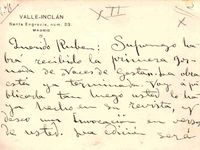 XII
VALLE-INCLÁN
Santa Engracia, núm. 23.
MADRID
Querido Rubén: Supongo ha-
brá recibido la primera Jor-
nada de Voces de Gesta. La obra
está ya terminada. Voy á pu-
blicarla tan luego usted lo ha-
ya hecho en su revista, y
deseo una Invocación en verso
de usted. La edición será